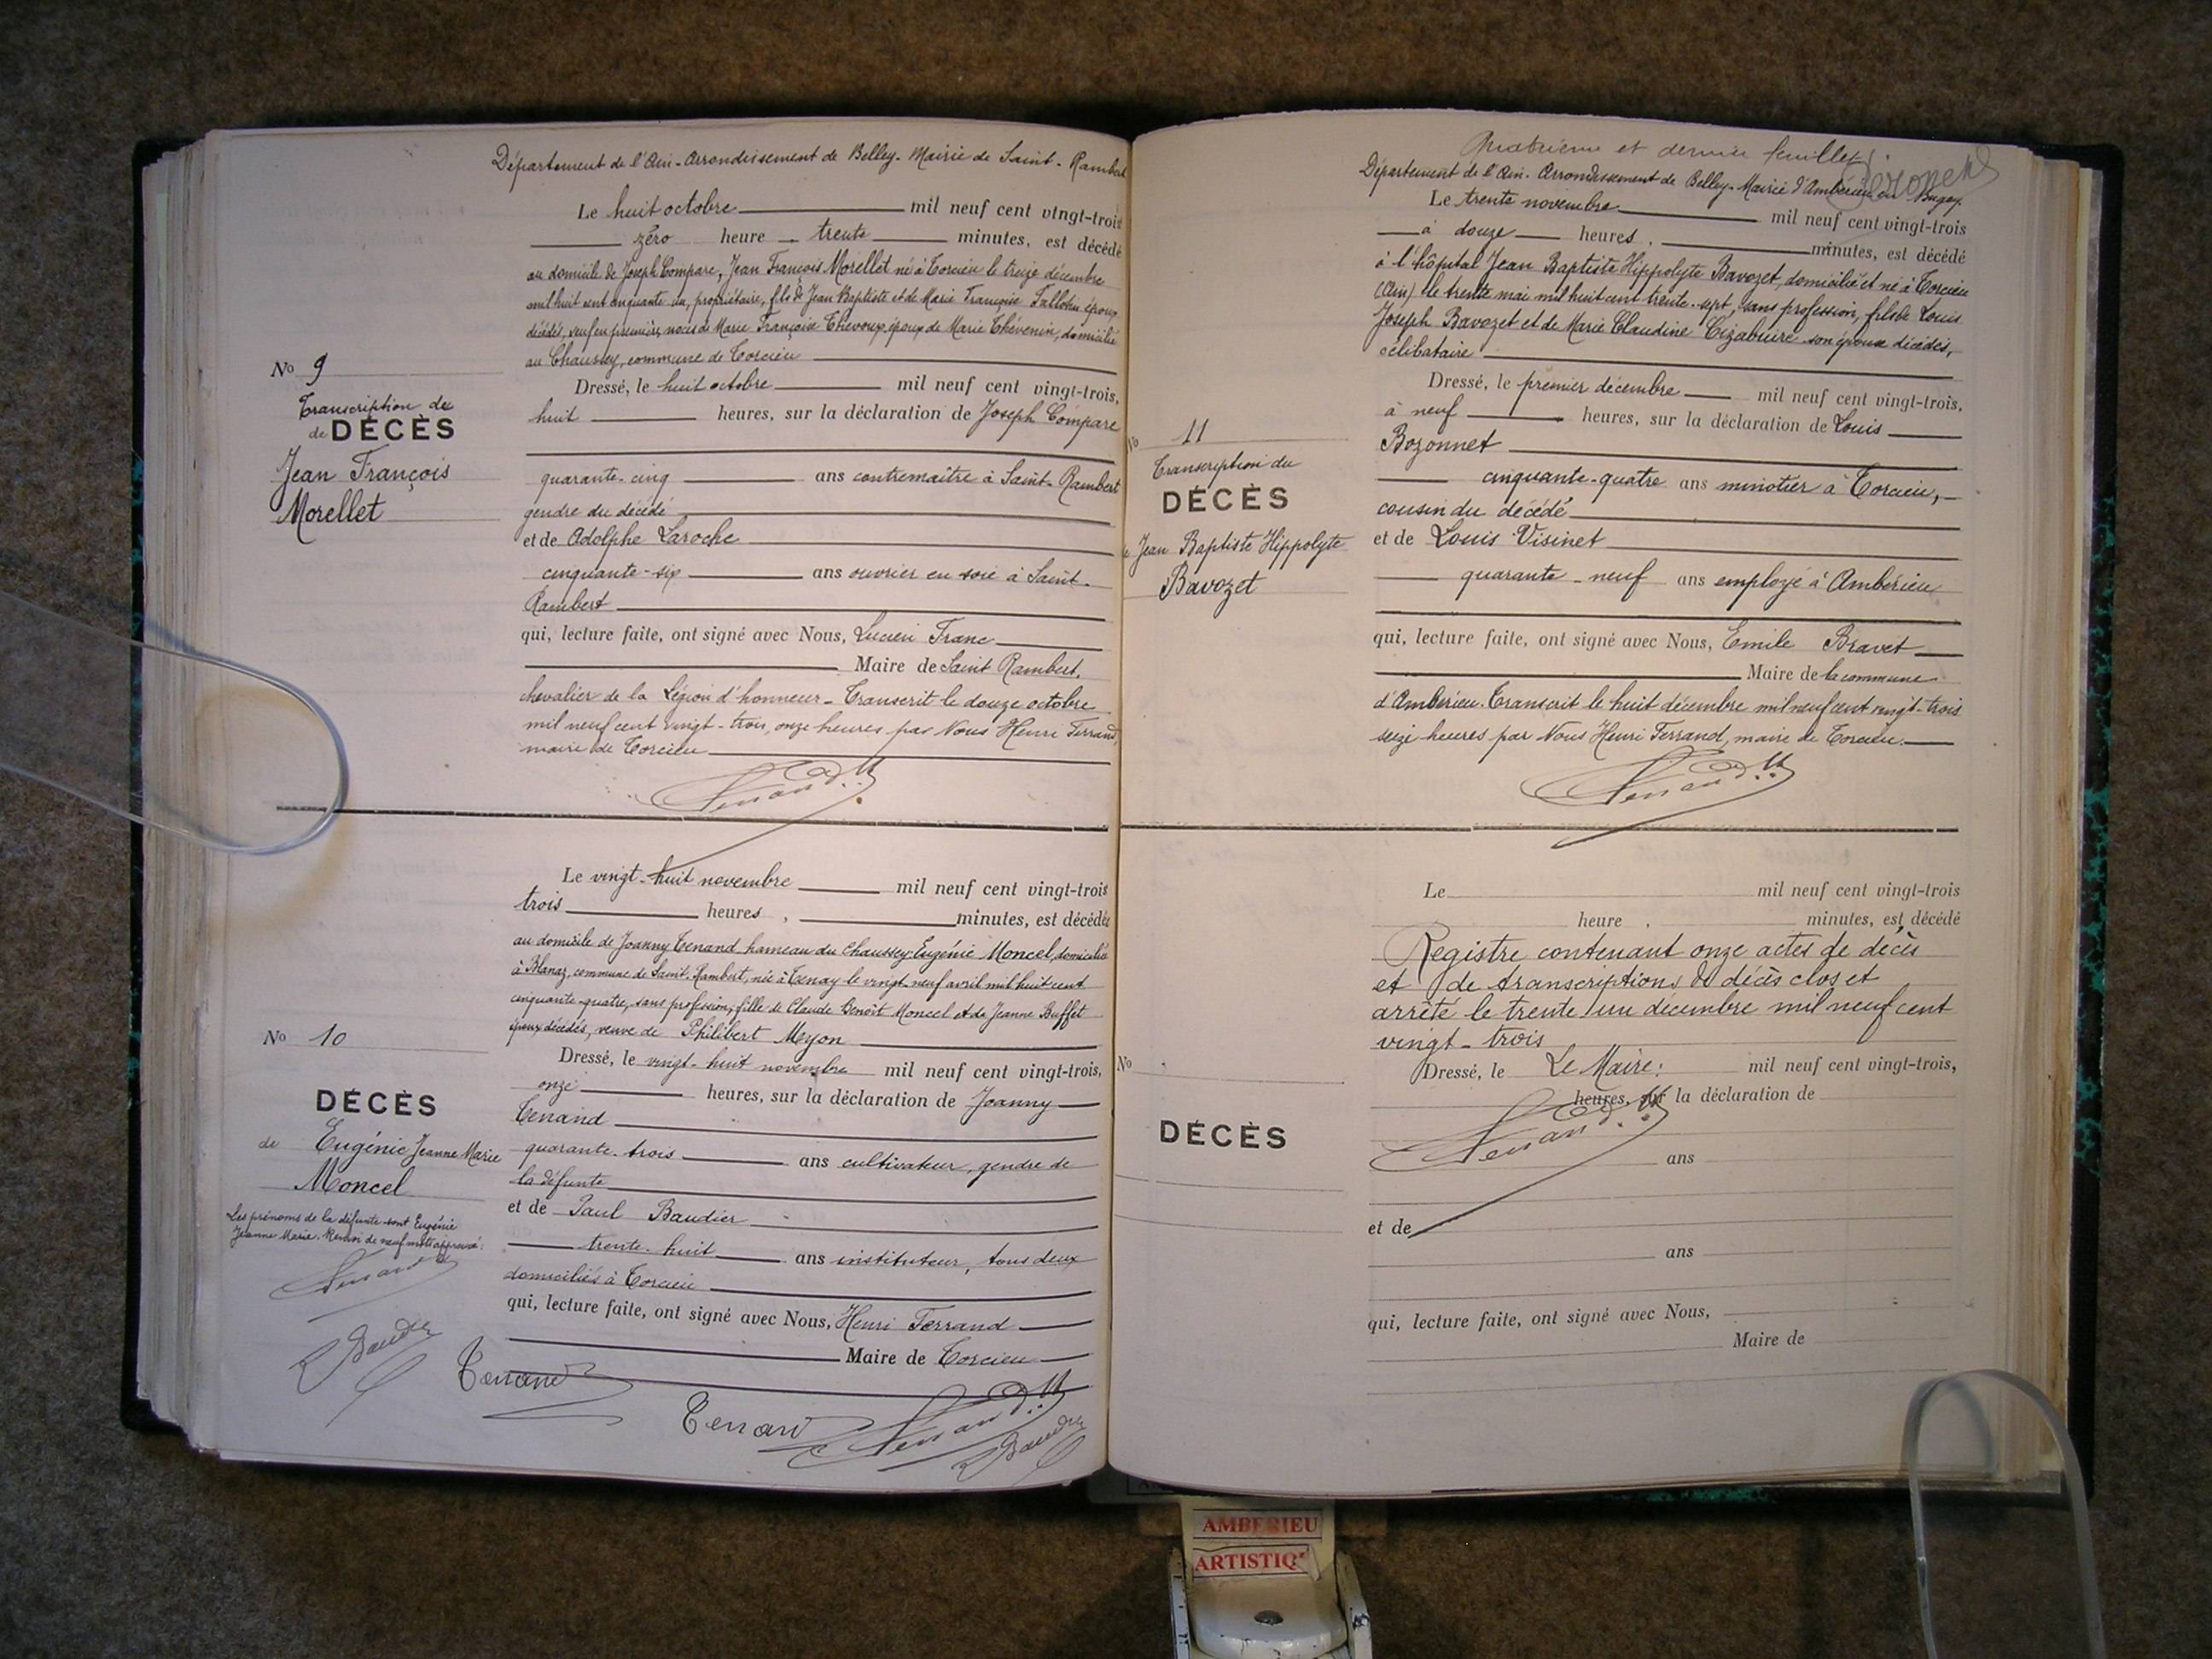 Département de l'Ain - Arrondissement de Belley - Mairie de Saint-Rambert
Le huit octobre mil neuf cent vingt-trois
zéro heure trente minutes, est décédé
au domicile de Joseph Compare, Jean François Morellet né à Torcieu le treize décembre
mil huit cent cinquante un, propriétaire, fils de Jean Baptiste et de Marie Françoise époux
décédés, veuf en premières noces de Marie Françoise époux de Marie Thévenin, domicilié
au Chaussey, commune de Torcieu
No 9
Transcription de
de DÉCÈS
Jean François
Morellet
Dressé, le huit octobre mil neuf cent vingt-trois,
huit heures, sur la déclaration de Joseph Compare
quarante-cinq ans contremaître à Saint-Rambert
gendre du décédé
et de Adolphe Laroche
cinquante-six ans ouvrier en soie à Saint-
Rambert
qui, lecture faite, ont signé avec Nous, Lucien Franc
Maire de Saint Rambert,
chevalier de la Légion d'honneur - Transcrit le douze octobre
mil neuf cent vingt-trois, onze heures par Nous Henri Ferrand,
maire de Torcieu
Ferrand
Le vingt-huit novembre mil neuf cent vingt-trois
trois heures, minutes, est décédée
au domicile de Joanny Tenand hameau du Chaussey Eugénie Moncel, domiciliée
à Blanaz, commune de Saint-Rambert, née à Tenay le vingt-neuf avril mil huit cent
cinquante-quatre, sans profession, fille de Claude Benoît Moncel et de Jeanne Buffet
époux décédés, veuve de Philibert Meyon
No 10
DÉCÈS
de Eugénie Jeanne Marie
Moncel
Les prénoms de la défunte sont Eugénie
Jeanne Marie. Renvoi de neuf mots approuvé:
Ferrand
Baudier
Dressé, le vingt-huit novembre mil neuf cent vingt-trois,
onze heures, sur la déclaration de Joanny
Tenand
quarante-trois ans cultivateur, gendre de
la défunte
et de Paul Baudier
trente-huit ans instituteur, tous deux
domiciliés à Torcieu
qui, lecture faite, ont signé avec Nous, Henri Ferrand
Maire de Torcieu
Tenand
Tenand Ferrand
Baudier
Quatrième et dernier feuillet
Département de l'Ain. Arrondissement de Belley - Mairie d'Ambérieu en Bugey.
Le trente novembre mil neuf cent vingt-trois
à douze heures, minutes, est décédé
à l'hôpital Jean Baptiste Hippolyte Bavozet, domicilié et né à Torcieu
(Ain) le trente mai mil huit cent trente-sept, sans profession, fils de Louis
Joseph Bavozet et de Marie Claudine son épouse décédés,
célibataire
No 11
Transcription du
DÉCÈS
de Jean Baptiste Hippolyte
Bavozet
Dressé, le premier décembre mil neuf cent vingt-trois,
à neuf heures, sur la déclaration de Louis
Bozonnet
cinquante-quatre ans minotier à Torcieu,
cousin du décédé
et de Louis Visinet
quarante-neuf ans employé à Ambérieu
qui, lecture faite, ont signé avec Nous, Emile Bravet
Maire de la commune
d'Ambérieu. Transcrit le huit décembre mil neuf cent vingt-trois
seize heures par Nous Henri Ferrand, maire de Torcieu.
Ferrand
Le mil neuf cent vingt-trois
heure , minutes, est décédé
Registre contenant onze actes de décès
et de transcriptions de décès clos et
arrêté le trente un décembre mil neuf cent
vingt-trois
No
DÉCÈS
Dressé, le Le Maire: mil neuf cent vingt-trois,
heures, sur la déclaration de
Ferrand
ans
et de
ans
qui, lecture faite, ont signé avec Nous,
Maire de
AMBERIEU
ARTISTIQ